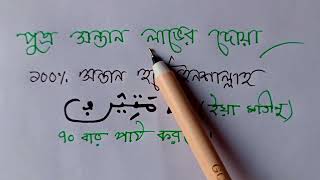 পুত্র সন্তান লাভের দোয়া
১০০% সন্তান হবে ইনশাল্লাহ
مَتِيْنُ (ইয়া মাতিনু)
৭০ বার পাঠ